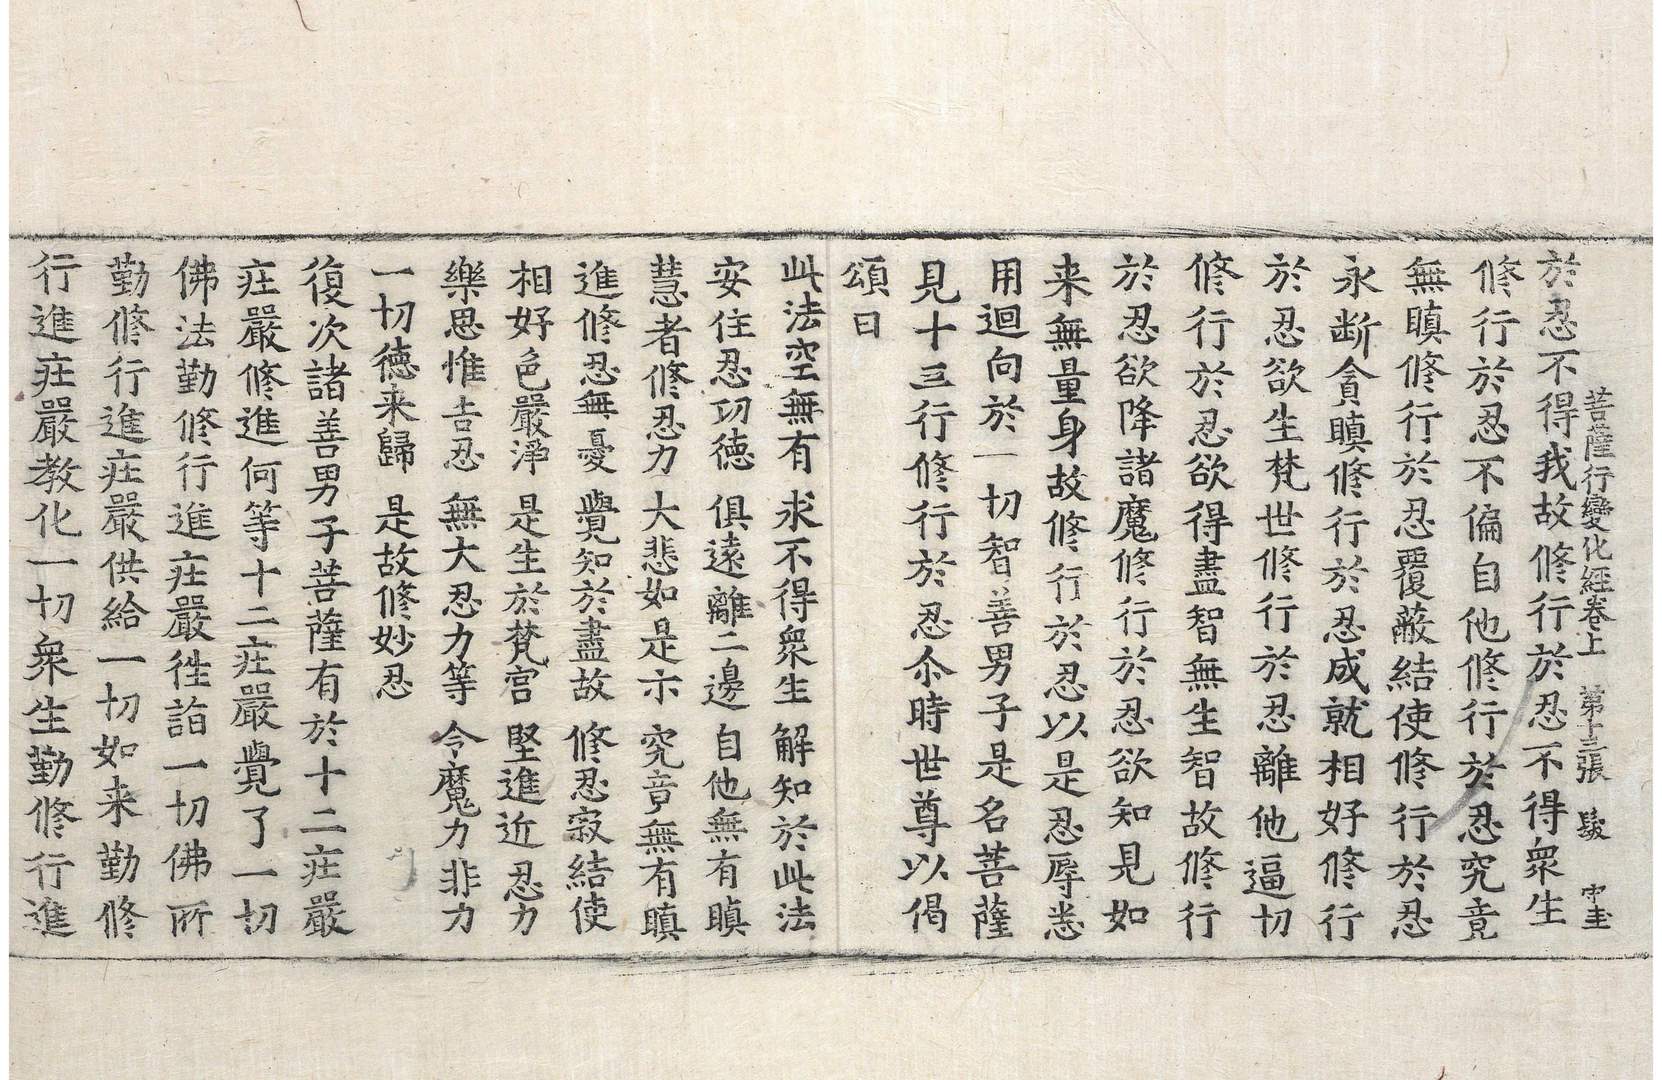 菩薩行變化經卷上 第十三張 駿 守圭
於忍不得我故修行於忍不得衆生
修行於忍不偏自他修行於忍究竟
無瞋修行於忍覆蔽結使修行於忍
永断貪瞋修行於忍成就相好修行
於忍欲生梵世修行於忍離他逼切
修行於忍欲得盡智無生智故修行
於忍欲降諸魔修行於忍欲知見如
来無量身故修行於忍以是忍辱悉
用迴向於一切智善男子是名菩薩
見十三行修行於忍尒時世尊以偈
頌曰
此法空無有 求不得衆生 解知於此法
安住忍功徳 俱遠離二邊 自他無有瞋
慧者修忍力 大悲如是示 究竟無有瞋
進修忍無憂 覺知於盡故 修忍寂結使
相好色嚴淨 是生於梵宮 堅進近忍力
樂思惟吉忍 無大忍力等 令魔力非力
一切徳来歸 是故修妙忍
復次諸善男子菩薩有於十二莊嚴
莊嚴修進何等十二莊嚴覺了一切
佛法勤修行進莊嚴徃詣一切佛所
勤修行進莊嚴供給一切如来勤修
行進莊嚴教化一切衆生勤修行進